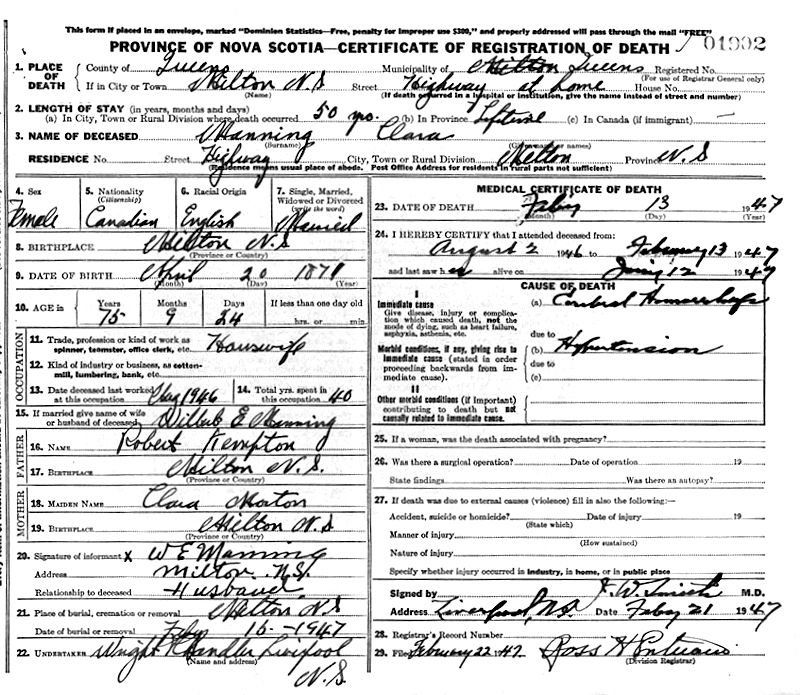 This form if placed in an envelope, marked "Dominion Statistics—Free, penalty for improper use $300," and properly addressed will pass through the mail "FREE"
PROVINCE OF NOVA SCOTIA—CERTIFICATE OF REGISTRATION OF DEATH 01902
1. PLACE OF DEATH County of Queens Municipality of Milton Queens Registered No.
(For use of Registrar General only)
If in City or Town Milton N.S Street Highway at home House No.
(Name) (If death occurred in a hospital or institution, give the name instead of street and number)
2. LENGTH OF STAY (in years, months and days)
(a) In City, Town or Rural Division where death occurred 50 yrs. (b) In Province Lifetime (c) In Canada (if immigrant) —
3. NAME OF DECEASED Manning Clara
(Surname) (Given or names)
RESIDENCE No. Street Highway City, Town or Rural Division Milton Province N.S
(Residence means usual place of abode. Post Office Address for residents in rural parts not sufficient)
4. Sex Female
5. Nationality (Citizenship) Canadian
6. Racial Origin English
7. Single, Married, Widowed or Divorced (write the word) Married
8. BIRTHPLACE Milton N.S
(Province or Country)
9. DATE OF BIRTH April 20 1871
(Month) (Day) (Year)
10. AGE in Years 75 Months 9 Days 24 If less than one day old
hrs. or min.
OCCUPATION
11. Trade, profession or kind of work as spinner, teamster, office clerk, etc. Housewife
12. Kind of industry or business, as cotton-mill, lumbering, bank, etc.
13. Date deceased last worked at this occupation Aug 1946 14. Total yrs. spent in this occupation 40
15. If married give name of wife or husband of deceased Wilbut E Manning
FATHER
16. NAME Robert Kempton
17. BIRTHPLACE Milton N.S.
(Province or Country)
MOTHER
18. MAIDEN NAME Clara Morton
19. BIRTHPLACE Milton N.S
(Province or Country)
20. Signature of informant x W E Manning
Address Milton N.S.
Relationship to deceased Husband
21. Place of burial, cremation or removal Milton N S
Date of burial or removal Feby 15—1947
22. UNDERTAKER Wright Chandler Liverpool
(Name and address) N.S.
MEDICAL CERTIFICATE OF DEATH
23. DATE OF DEATH Feby 13 1947
(Month) (Day) (Year)
24. I HEREBY CERTIFY that I attended deceased from:
August 2 1946 to February 13 1947
and last saw her alive on 12 1947
CAUSE OF DEATH
I
Immediate cause (a) Cerebral Hemorrhage
Give disease, injury or complication which caused death, not the mode of dying, such as heart failure, asphyxia, asthenia, etc.
due to
Morbid conditions, if any, giving rise to immediate cause (stated in order proceeding backwards from immediate cause). (b) Hypertension
due to
(c)
II
Other morbid conditions (if important) contributing to death but not causally related to immediate cause.
25. If a woman, was the death associated with pregnancy?
26. Was there a surgical operation? Date of operation 19
State findings Was there an autopsy?
27. If death was due to external causes (violence) fill in also the following:—
Accident, suicide or homicide? Date of injury 19
(State which)
Manner of injury
(How sustained)
Nature of injury
Specify whether injury occurred in industry, in home, or in public place
Signed by W. Smith M.D.
Address Liverpool, N.S. Date Feby 21 1947
28. Registrar's Record Number
29. Filed February 22 1947 Ross H
(Division Registrar)